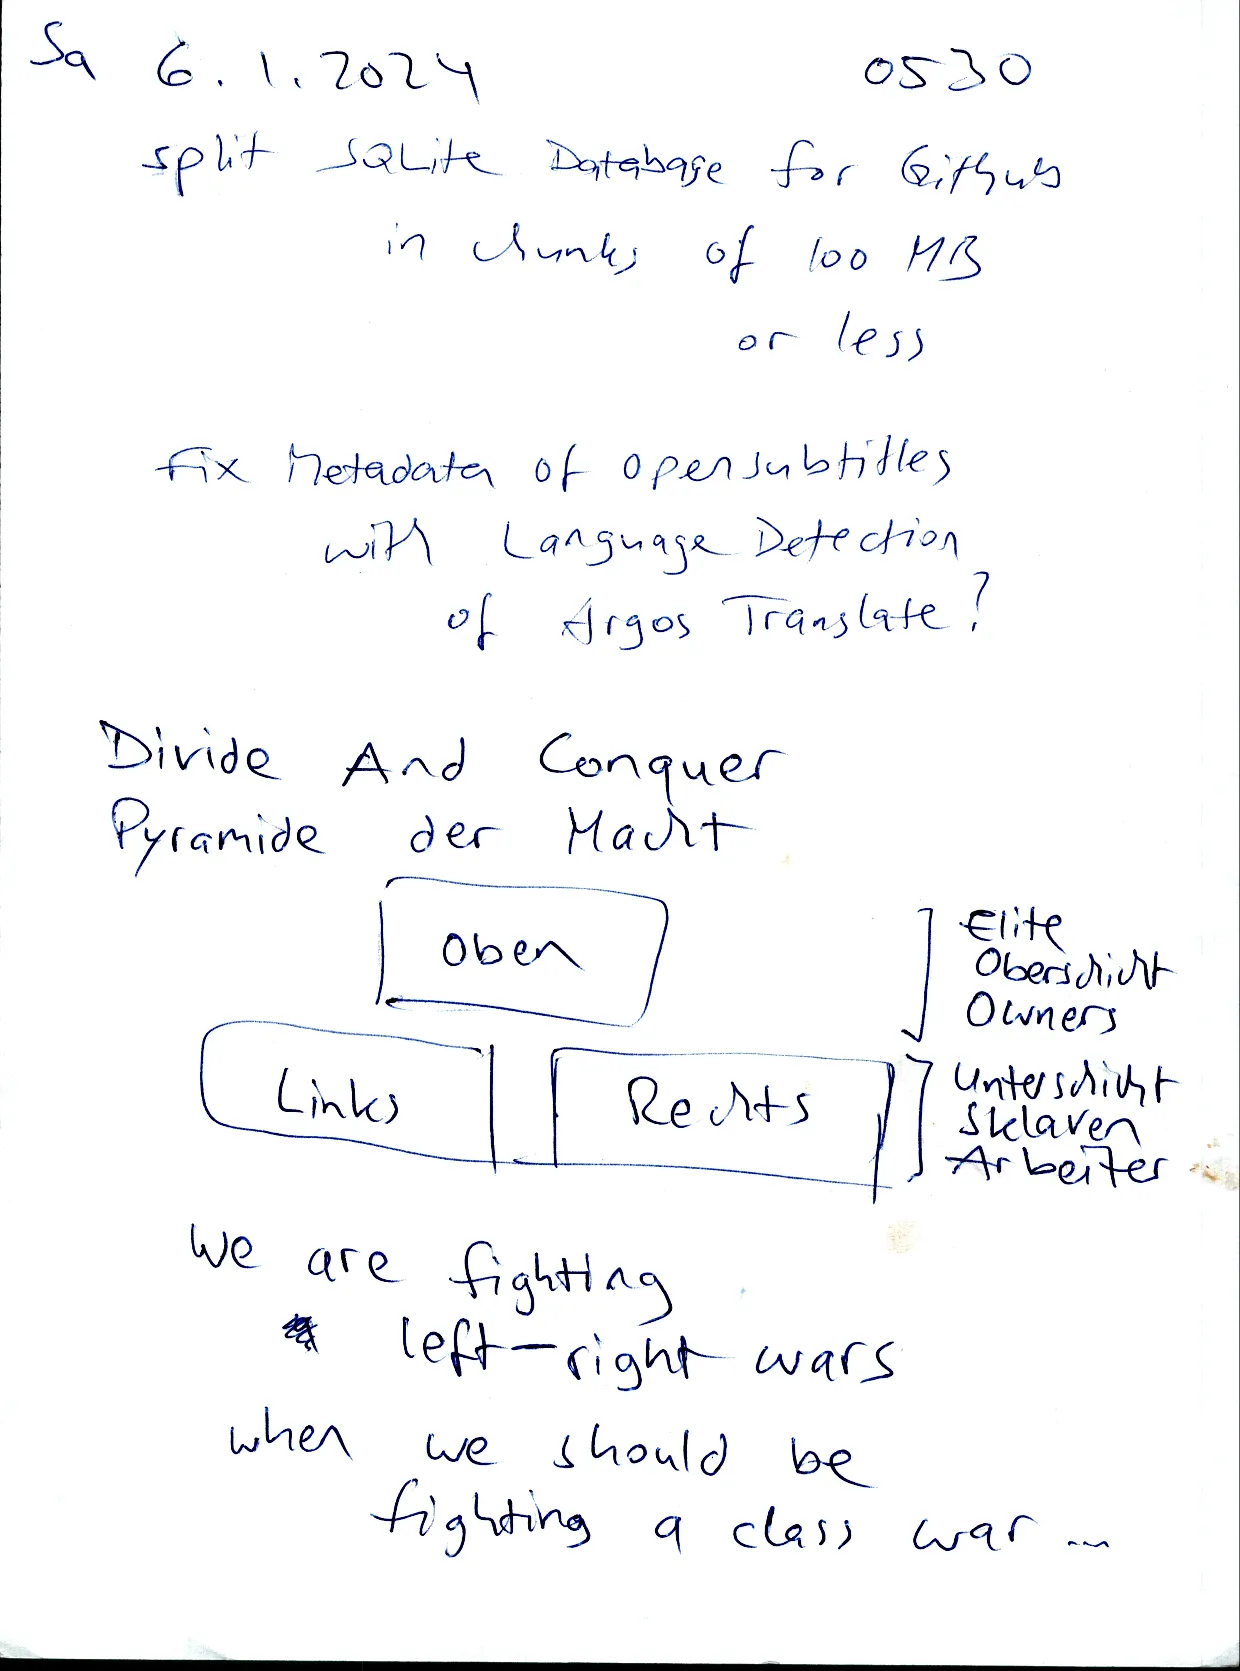 Sa 6.1.2024 0530
split SQLite Database for Github
in chunks of 100 MB
or less
fix Metadata of opensubtitles
with Language Detection
of Argos Translate?
Divide And Conquer
Pyramide der Macht
Oben
Elite
Oberschicht
Owners
Links
Rechts
Unterschicht
Sklaven
Arbeiter
We are fighting
left-right wars
when we should be
fighting a class war ...